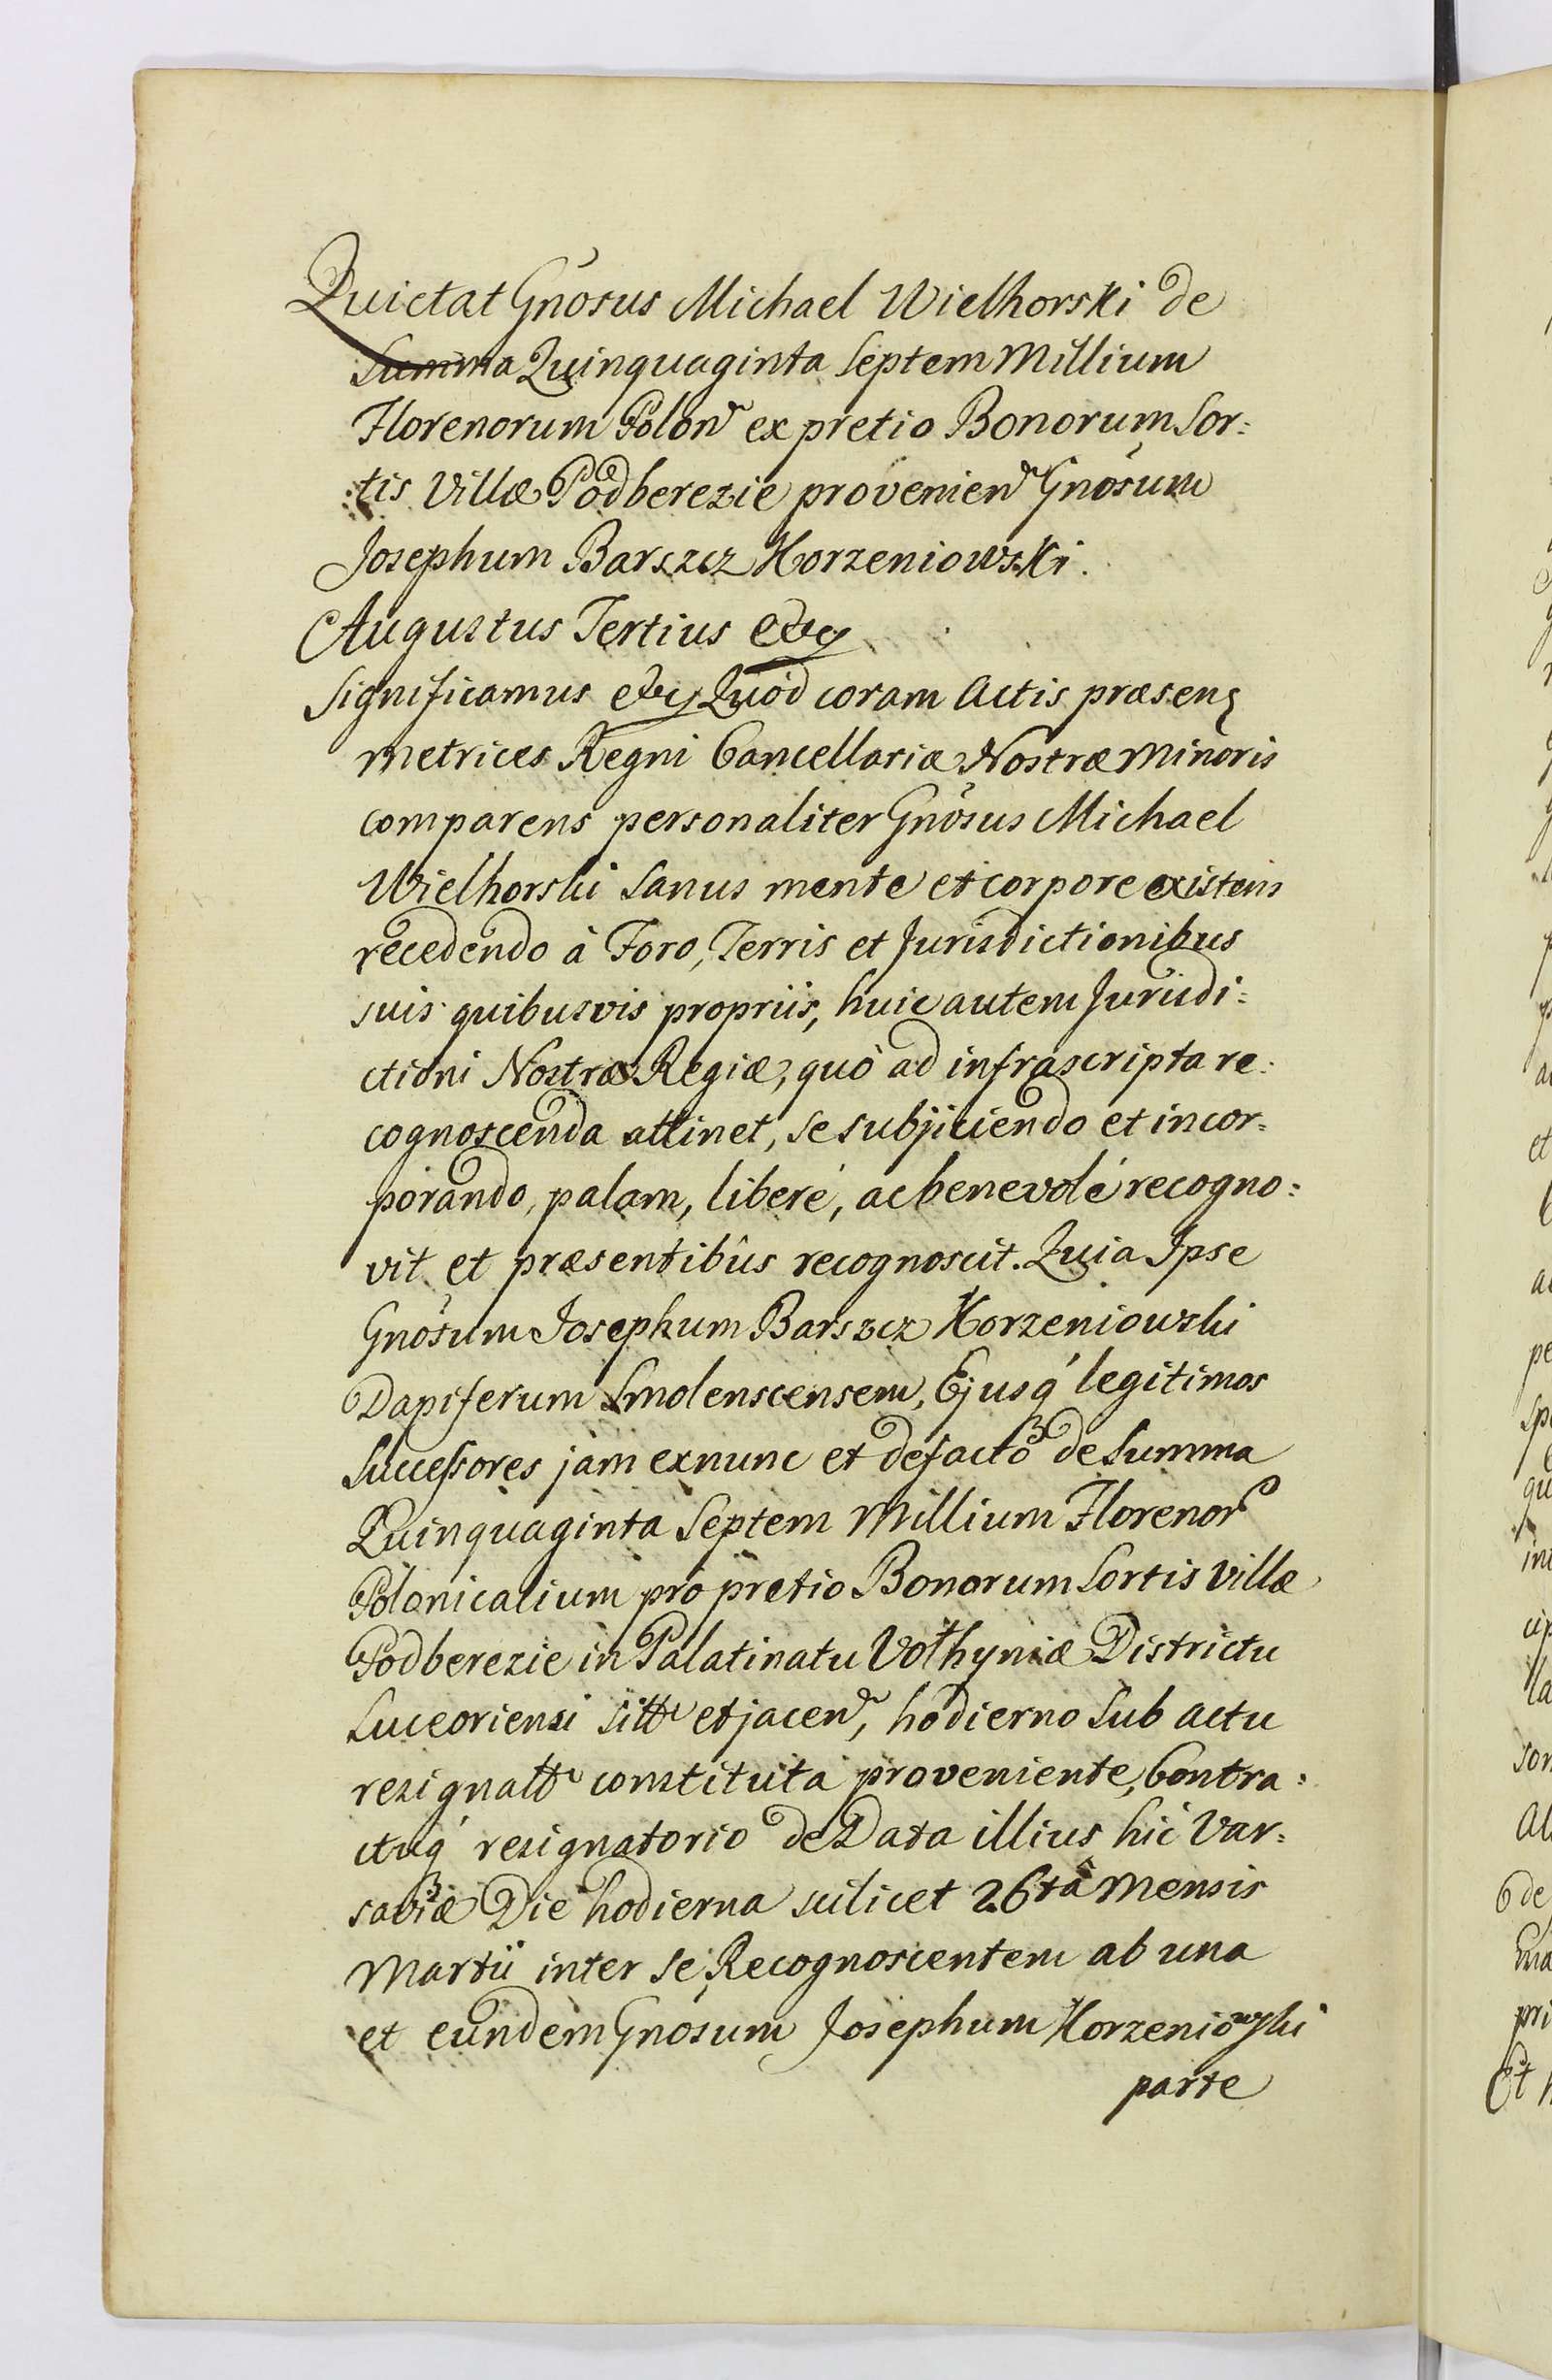 Quietat Gnosus Michael Wielhorski de
Summa Quinquaginta Septem Millium
Florenorum Polon ex pretio Bonorum Sor:
:tis Villæ Podberezie provenien Gnosum
Josephum Barszcz Korzeniowski.
Augustus Tertius etc
Significamus etc Quod coram Actis præsen
Metrices Regni Cancellariæ Nostræ Minoris
comparens personaliter Gnosus Michael
Wielhorski Sanus mente et corpore existens
recedendo à Foro, Terris et Jurisdictionibus
suis quibusvis propriis, huic autem Jurisdi:
ctioni Nostræ Regiæ, quò ad infrascripta re:
cognoscenda attinet, se subjiciendo et incor:
porando, palam, liberé, ac benevolé recogno:
vit et præsentibûs recognoscit. Quia Ipse
Gnosum Josephum Barszcz Korzeniowski
Dapiferum Smolenscensem, Ejusq́ legitimos
Successores jam exnunc et defacto de Summa
Quinquaginta Septem Millium Florenor
Polonicalium pro pretio Bonorum Sortis Villæ
Podberezie in Palatinatu Volhyniæ Districtu
Luceoriensi sitt et jacen, hodierno sub actu
resignatt constituta proveniente, Contra:
ctuq́ resignatorio de Data illius hic Var:
saviæ Die hodierna scilicet 26tâ Mensis
Martii inter se Recognoscentem ab una
et eundem Gnosum Josephum Korzeniowski
parte